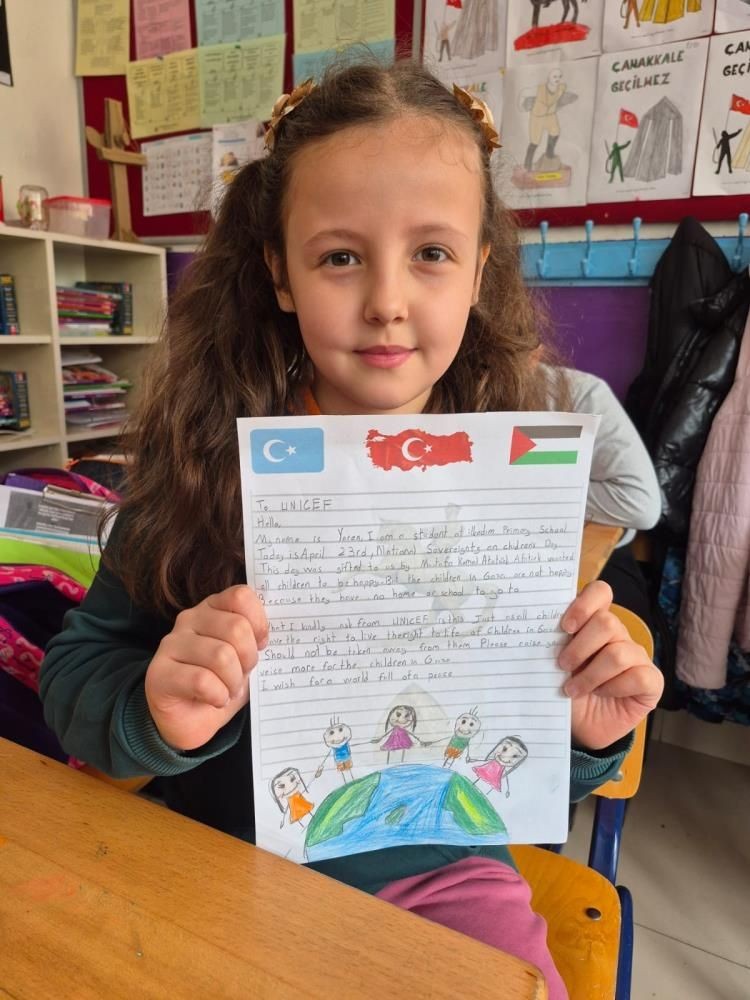 ÇANAKKALE
GEÇİLMEZ
ÇAN
GEÇİ
To UNICEF
Hello,
My name is I am a student at ilkadım Primary School
Today is April 23rd, National Sovereignty an chidrens Day
This day was gifted to us by Mustafa Kemal Atatürk Atatürk wanted
all children to be happy. But the children in Gaza are not happy.
Because they have no home or school to go to
What I kindly ask from UNICEF is this Just as all childre
have the right to live the right to life of Children in Gaza
Should not be taken away from them Please raise your
voice more for the children in Gaza
I wish for a world full of a peace